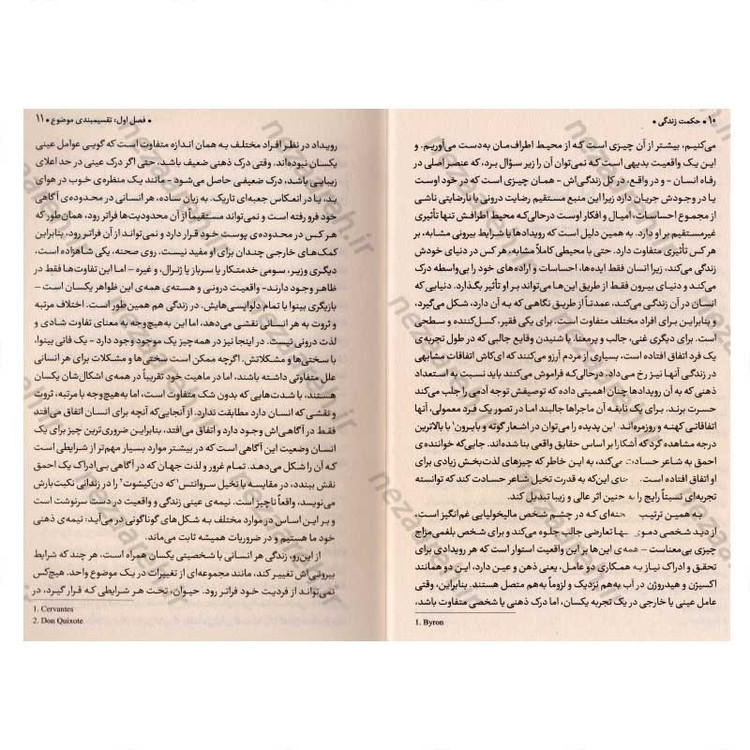 ۱۰ • حکمت زندگی •
می‌کنیم، بیشتر از آن چیزی است که از محیط اطراف‌مان به‌دست می‌آوریم. و
این یک واقعیت بدیهی است که نمی‌توان آن را زیر سؤال برد، که عنصر اصلی در
رفاه انسان - و در واقع، در کل زندگی‌اش - همان چیزی است که در خود اوست
یا در وجودش جریان دارد زیرا این منبع مستقیم رضایت درونی یا نارضایتی ناشی
از مجموع احساسات، امیال و افکار اوست درحالی‌که محیط اطرافش تنها تأثیری
غیرمستقیم بر او دارد. به همین دلیل است که رویدادها یا شرایط بیرونی مشابه، بر
هر کس تأثیری متفاوت دارد. حتی با محیطی کاملاً مشابه، هر کس در دنیای خودش
زندگی می‌کند، زیرا انسان فقط ایده‌ها، احساسات و اراده‌های خود را بی‌واسطه درک
می‌کند و دنیای بیرون فقط از طریق این‌ها می‌تواند بر او تأثیر بگذارد. دنیایی که
انسان در آن زندگی می‌کند، عمدتاً از طریق نگاهی که به آن دارد، شکل می‌گیرد،
و بنابراین برای افراد مختلف متفاوت است، برای یکی فقیر، کسل‌کننده و سطحی
است، برای دیگری غنی، جالب و پرمعنا. با شنیدن وقایع جالبی که در طول تجربه‌ی
یک فرد اتفاق افتاده است، بسیاری از مردم آرزو می‌کنند که ای‌کاش اتفاقات مشابهی
در زندگی آنها نیز رخ می‌داد، درحالی‌که فراموش می‌کنند باید نسبت به استعداد
ذهنی که به آن رویدادها چنان اهمیتی داده که توصیفش توجه آدمی را جلب می‌کند
حسرت برند. برای یک نابغه آن ماجراها جالبند اما در تصور یک فرد معمولی، آنها
اتفاقاتی کهنه و روزمره‌اند. این پدیده را می‌توان در اشعار گوته و بایرون¹ با بالاترین
درجه مشاهده کرد که آشکارا بر اساس حقایق واقعی بنا شده‌اند. جایی‌که خواننده‌ی
احمق به شاعر حسادت می‌کند، به این خاطر که چیزهای لذت‌بخش زیادی برای
او اتفاق افتاده است، به جای این‌که به قدرت تخیل شاعر حسادت کند که توانسته
تجربه‌ای نسبتاً رایج را به چنین اثر عالی و زیبا تبدیل کند.
به همین ترتیب، صحنه‌ای که در چشم شخص مالیخولیایی غم‌انگیز است،
از دید شخصی دموی تنها تعارضی جالب جلوه می‌کند و برای شخص بلغمی‌مزاج
چیزی بی‌معناست - همه‌ی این‌ها بر این واقعیت استوار است که هر رویدادی برای
تحقق و ادراک نیاز به همکاری دو عامل، یعنی ذهن و عین دارد، این دو همانند
اکسیژن و هیدروژن در آب به‌هم نزدیک و لزوماً به‌هم متصل هستند. بنابراین، وقتی
عامل عینی یا خارجی در یک تجربه یکسان، اما درک ذهنی یا شخصی متفاوت باشد،
1. Byron
• فصل اول: تقسیم‌بندی موضوع • ۱۱
رویداد در نظر افراد مختلف به همان اندازه متفاوت است که گویی عوامل عینی
یکسان نبوده‌اند. وقتی درک ذهنی ضعیف باشد، حتی اگر درک عینی در حد اعلای
زیبایی باشد، درک ضعیفی حاصل می‌شود - مانند یک منظره‌ی خوب در هوای
بد، یا در انعکاس جعبه‌ای تاریک. به زبان ساده، هر انسانی در محدوده‌ی آگاهی
خود فرو رفته است و نمی‌تواند مستقیماً از آن محدودیت‌ها فراتر رود، همان‌طور که
هر کس در محدوده‌ی پوست خود قرار دارد و نمی‌تواند از آن فراتر رود، بنابراین
کمک‌های خارجی چندان برای او مفید نیست. روی صحنه، یکی شاهزاده است،
دیگری وزیر، سومی خدمتکار یا سرباز یا ژنرال، و غیره - اما این تفاوت‌ها فقط در
ظاهر وجود دارند - واقعیت درونی و هسته‌ی همه‌ی این ظواهر یکسان است -
بازیگری بینوا با تمام دلواپسی‌هایش. در زندگی هم همین‌طور است. اختلاف مرتبه
و ثروت به هر انسانی نقشی می‌دهد، اما این به‌هیچ‌وجه به معنای تفاوت شادی و
لذت درونی نیست. در اینجا نیز در همه‌چیز یک موجود وجود دارد - یک فانی بینوا،
با سختی‌ها و مشکلاتش. اگرچه ممکن است سختی‌ها و مشکلات برای هر انسانی
علل متفاوتی داشته باشند، اما در ماهیت خود تقریباً در همه‌ی اشکال‌شان یکسان
هستند، با شدت‌هایی که بدون شک متفاوت است، اما به‌هیچ‌وجه با مرتبه، ثروت
و نقشی که انسان دارد مطابقت ندارد. از آنجایی‌که آنچه برای انسان اتفاق می‌افتد
فقط در آگاهی‌اش وجود دارد و اتفاق می‌افتد، بنابراین ضروری‌ترین چیز برای یک
انسان وضعیت این آگاهی است که در بیشتر موارد بسیار مهم‌تر از شرایطی است
که آن را شکل می‌دهد. تمام غرور و لذت جهان که در آگاهی بی‌ادراک یک احمق
نقش ببندد، در مقایسه با تخیل سروانتس¹ که دن‌کیشوت² را در زندانی نکبت‌بارش
می‌نویسد، واقعاً ناچیز است. نیمه‌ی عینی زندگی و واقعیت در دست سرنوشت است
و بر این اساس در موارد مختلف به شکل‌های گوناگونی در می‌آید: نیمه‌ی ذهنی
خود ما هستیم و در ضروریات همیشه ثابت می‌ماند.
از این‌رو، زندگی هر انسانی با شخصیتی یکسان همراه است، هر چند که شرایط
بیرونی‌اش تغییر کند، مانند مجموعه‌ای از تغییرات در یک موضوع واحد. هیچ‌کس
نمی‌تواند از فردیت خود فراتر رود. حیوان، تحت هر شرایطی که قرار گیرد، در
1. Cervantes
2. Don Quixote